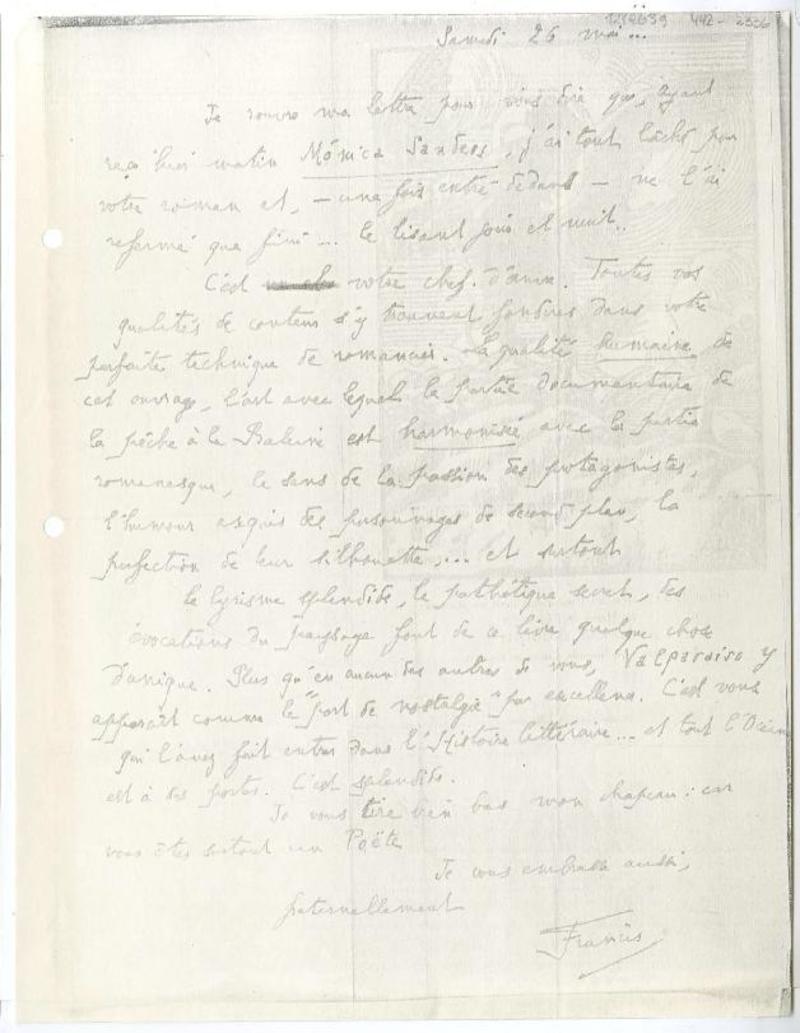 442-2306
Samedi 26 mai...
Je rouvre ma lettre pour vous dire que, ayant
reçu hier matin Mónica Sanders, j'ai tout lâché pour
votre roman et, — une fois entré dedans — ne l'ai
refermé que fini... le lisant jour et nuit..
C'est votre chef-d'œuvre. Toutes vos
qualités de conteur s'y trouvent fondues dans votre
parfaite technique de romancier. La qualité humaine de
cet ouvrage, l'art avec lequel la partie documentaire de
la pêche à la Baleine est harmonisé avec la partie
romanesque, le sens de la passion des protagonistes,
l'humour exquis des personnages de second plan, la
perfection de leur silhouette,... et surtout
le lyrisme splendide, le pathétique secret, des
évocations du paysage font de ce livre quelque chose
d'unique. Plus qu'en aucun des autres de vous, Valparaiso y
apparaît comme le "port de nostalgie" par excellence. C'est vous
qui l'avez fait entrer dans l'Histoire littéraire... et tout l'Océan
est à ses portes. C'est splendide.
Je vous tire bien bas mon chapeau : car
vous êtes surtout un Poëte
Je vous embrasse aussi,
fraternellement
Francis